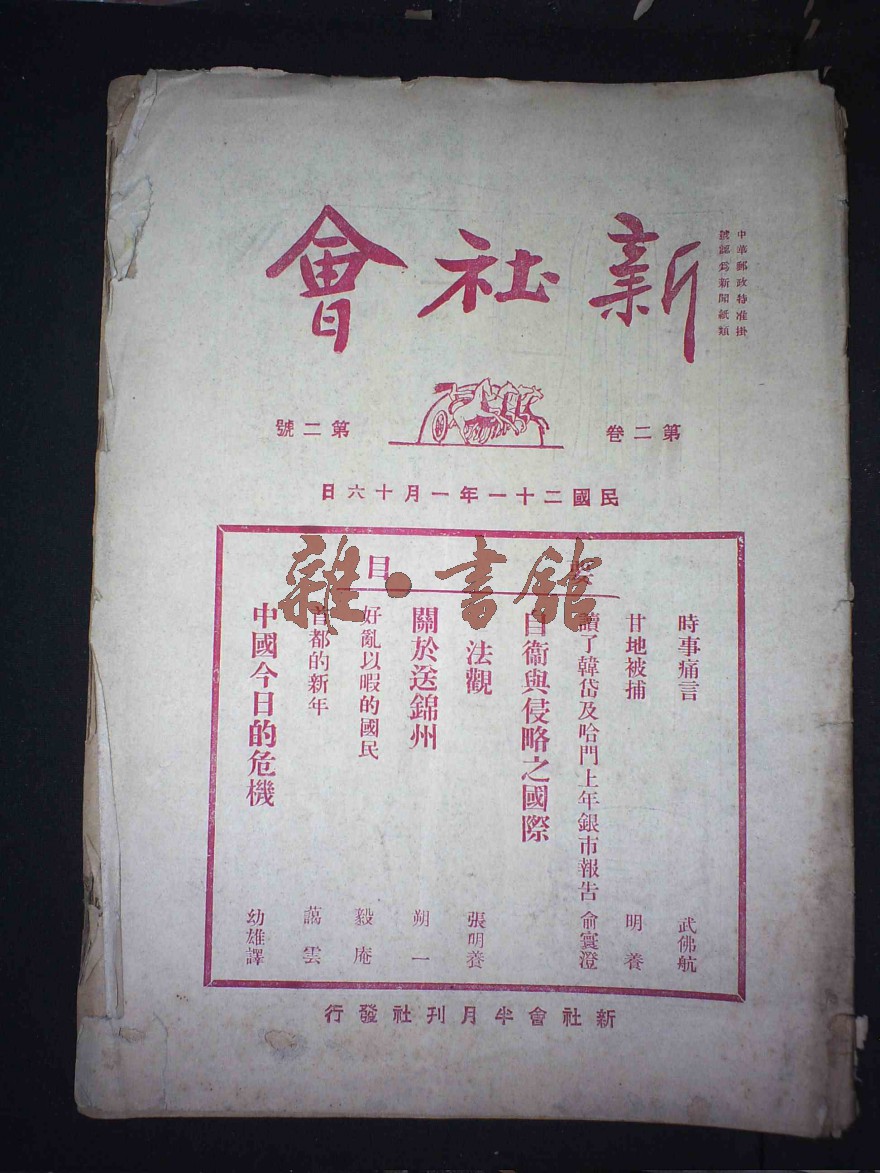 中華郵政特准掛
號認爲新聞紙類
新社會
第二卷
第二號
民國二十一年一月十六日
雜·書館
要目
時事痛言 武佛航
甘地被捕 明養
讀了韓岱及哈門上年銀市報告 俞寰澄
自衞與侵略之國際
法觀 張明養
關於送錦州 朔一
好亂以暇的國民 毅庵
首都的新年 藹雲
中國今日的危機 幼雄譯
新社會半月刊社發行